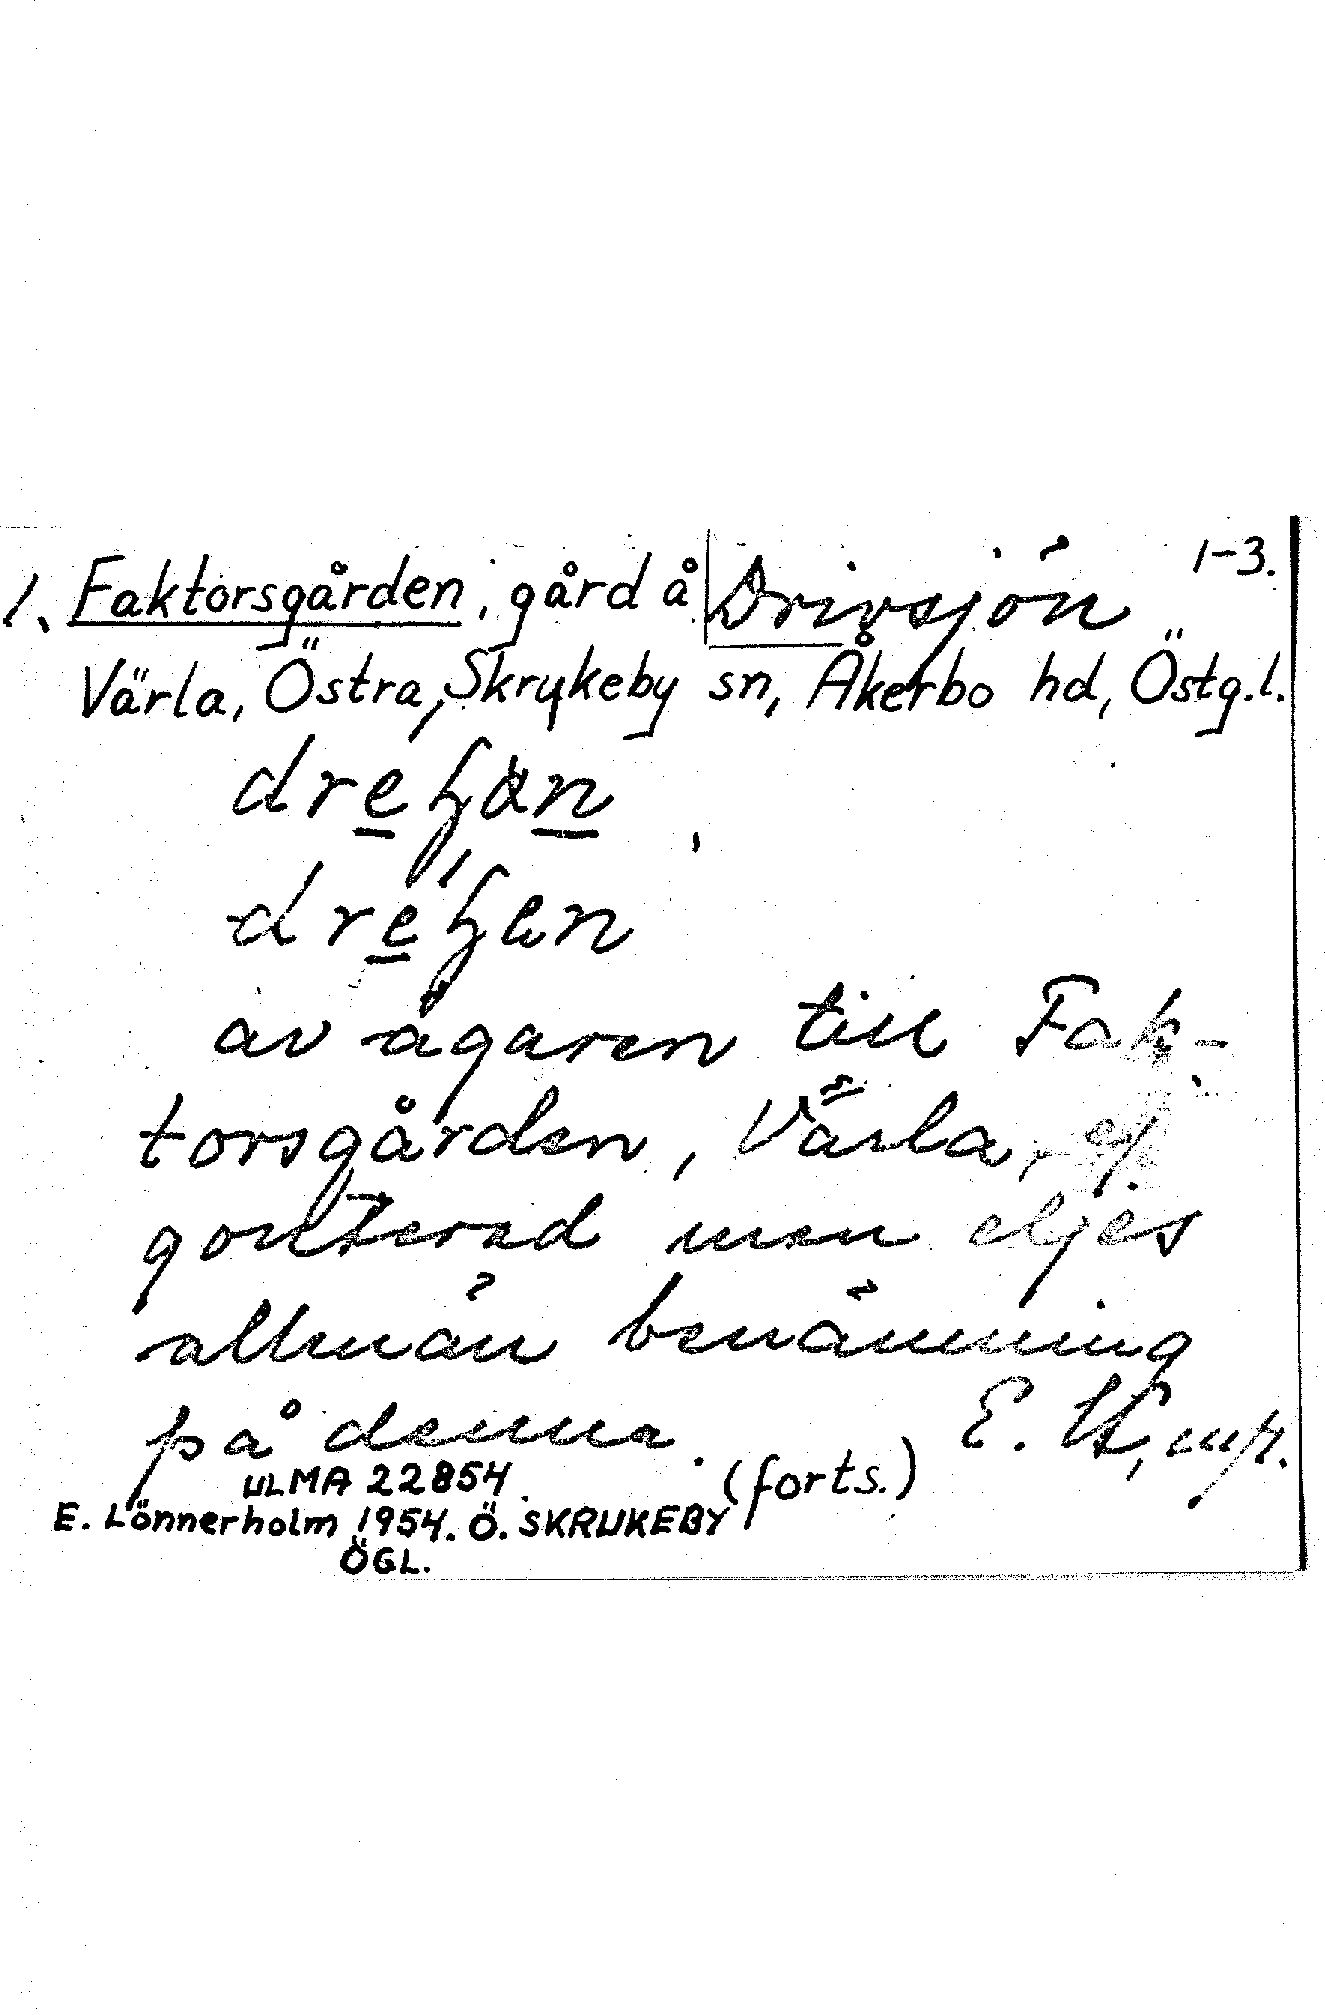 1-3.
1. Faktorsgården, gård å Drivsjön
Värla, Östra Skrukeby sn, Åkerbo hd, Östg.l.
av ägaren till Fak-
torsgården, Värla, ej
gouterad men eljes
allmän benämning
på denna. E.
(forts.)
ULMA 22854.
E. Lönnerholm 1954. Ö. SKRUKEBY
ÖGL.